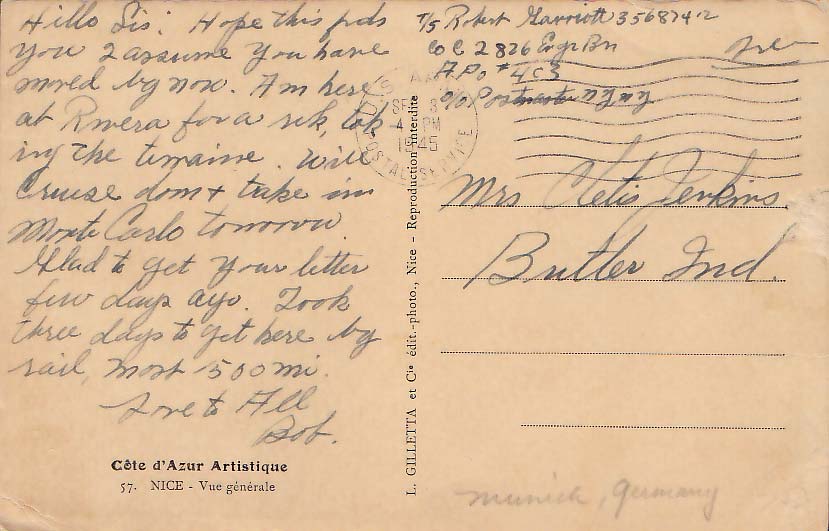 Hello Sis: Hope this finds
you I assume you have
moved by now. Am here
at Rivera for a rek,
ing the terraine. Will
Cruise dom + take in
Monte Carlo tomorrow.
Glad to get your letter
few days ago. Took
three days to get here by
rail, most 500 mi.
Love to All
Bob.
Côte d'Azur Artistique
57. NICE - Vue générale
L. GILLETTA et Cie édit.-photo., Nice - Reproduction interdite
T/5 Robert Marriott 35687412
Co C 2826 Engr Bn
A.P.O #403
c/o Postmaster NY NY
Free
U.S. ARMY
SEP 3
4 PM
1945
POSTAL SERVICE
Mrs Cletis Jenkins.
Butler Ind.
Munich, Germany